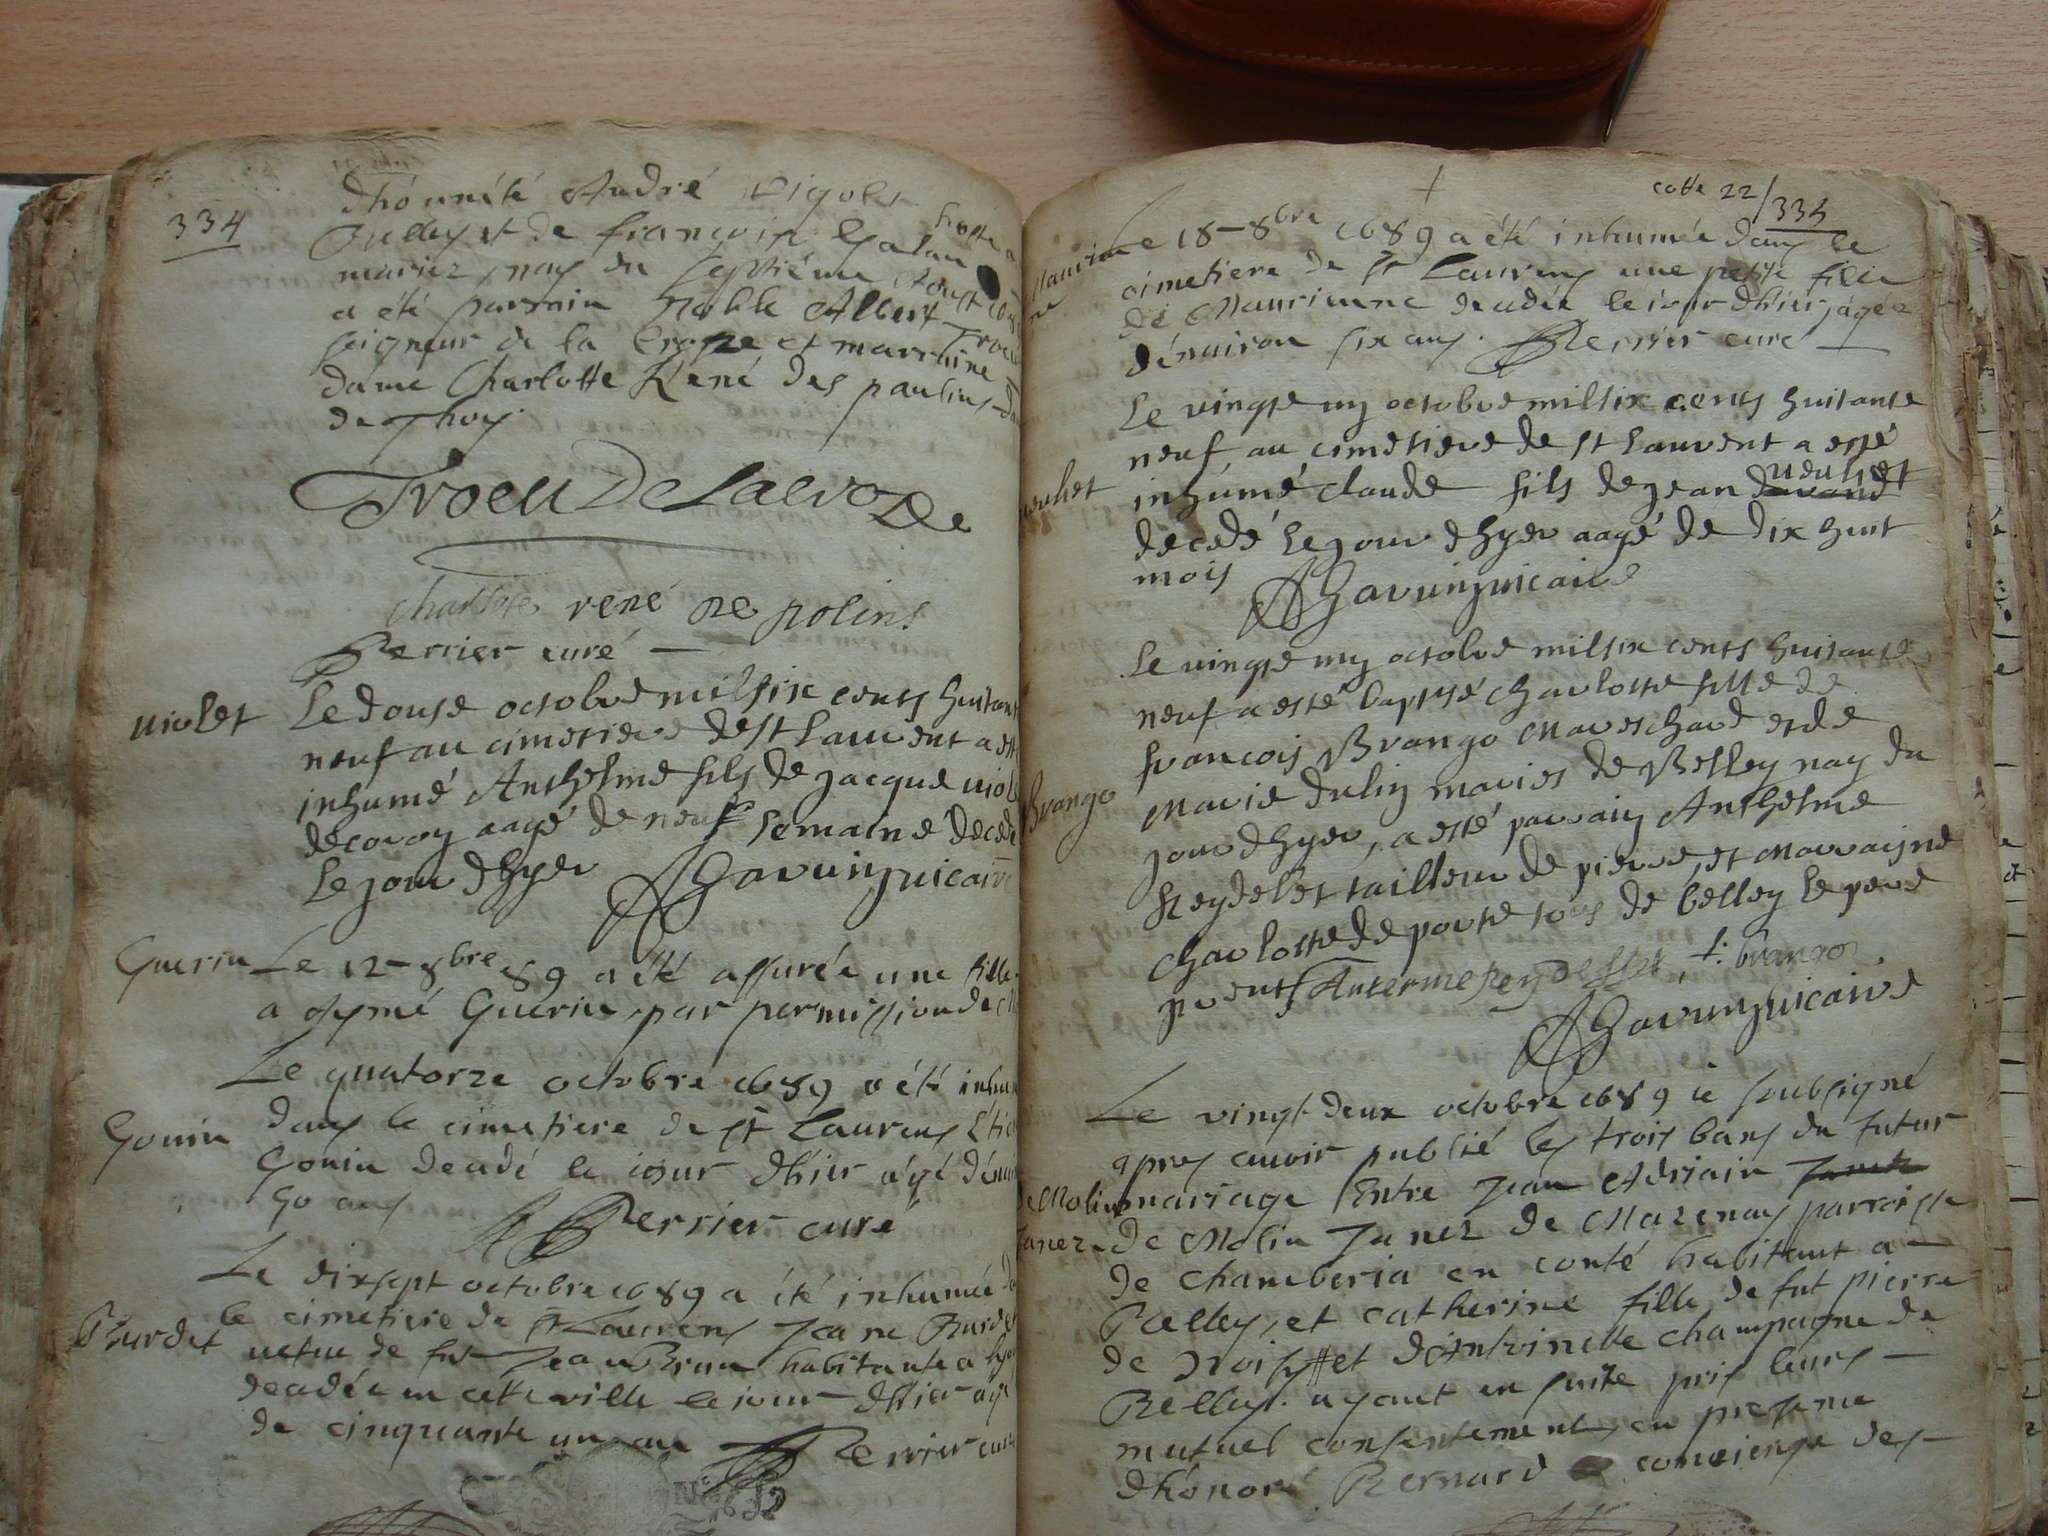 334
dhonnêté André Rigolet
Belley et de françoise
mariez, nay du septiéme Aoust
a été parrain Noble Albert Trocu
seigneur de la Croze et marraine
dame Charlotte René des paulins
de Thoy.
Trocu De Lacroze
charlote rené de polins
Perrier curé
violet
Le douse octobre mil six cents huitant
neuf au cimetiere de st laurent a est
inhumé Anthelme fils de jacque viol
decoroy aagé de neuf semaine decedé
le jour dhyer
Gavuin vicaire
Guerin
Le 12 - 8bre 89 a été assurée une fille
a Aymé Guerin par permission de
Le quatorze octobre 1689 a été inhu
Gonin
dans le cimetiere de St Laurens
Gonin decedé le iour d'hier agé d'envi
50 ans
Perrier curé
Le dixsept octobre 1689 a été inhumée
Burdet
le cimetiere de St Laurens Jeane Burdet
vefue de fut Jean Brun habitante a
decedée en cette ville le iour d'hier agé
de cinquante un an
Perrier curé
cotte 22/335
Maurienne
Le 18 - 8bre 1689 a été inhumée dans le
cimetiere de St Laurens une petite fille
de Maurienne decedée le iour d'hier, agée
d'enuiron six ans. Perrier curé
Le vingte un octobre mil six cents huitante
neuf, au cimetiere de st laurent a esté
neuliet
inhumé claude fils de jean neuliet
decedé le jour dhyer aagé de dix huit
mois
Gavuin vicaire
Le vingte un octobre mil six cents huitante
neuf a esté baptisé charlotte fille de
francois Brango Mareschard et de
Brango
Marie dulin maries de Belley nay du
jour dhyer, a esté parrain Anthelme
Reydelet tailleur de pierre, et Marraisne
charlotte de porte tous de belley le pere
present Anterme Reydellet, f. brango.
Gavuin vicaire
Le vingt-deux octobre 1689 ie soubsigné
apres auoir publié les trois bans du futur
de Molin mariage Entre Jean Adriain
Janez de Molin Janez de Mazenay parroisse
de chamberia en conté habitant a
Belley, et catherine fille de fut pierre
de et d'Anthoinette champagne de
Belley. ayant en suite pris leurs
mutuel consentement, en presence
d'honoré Bernard concierge des